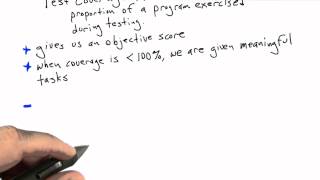 Test Coverage
proportion of a program exercised
during testing.
gives us an objective score
when coverage is <100%, we are given meaningful
tasks